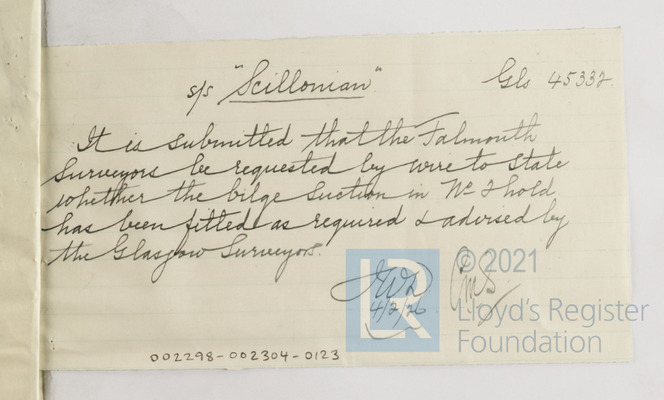 s/s "Scillonian" Gls 45332
It is submitted that the Falmouth
Surveyors be requested by wire to State
whether the bilge Suction in No 2 hold
has been fitted as required & advised by
the Glasgow Surveyors.
4/2/26
LR
© 2021
Lloyd's Register
Foundation
002298-002304-0123